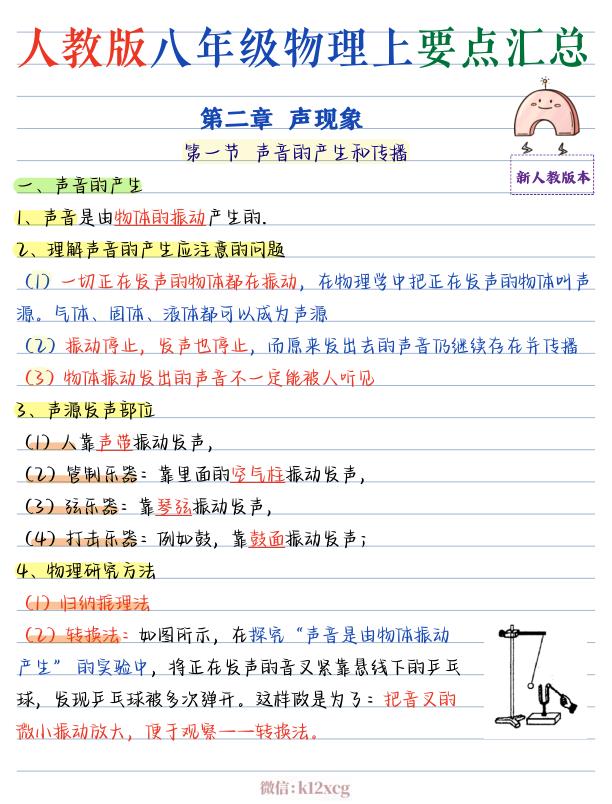 人教版八年级物理上要点汇总
第二章 声现象
第一节 声音的产生和传播
新人教版本
一、声音的产生
1、声音是由物体的振动产生的.
2、理解声音的产生应注意的问题
(1)一切正在发声的物体都在振动,在物理学中把正在发声的物体叫声
源。气体、固体、液体都可以成为声源
(2)振动停止,发声也停止,而原来发出去的声音仍继续存在并传播
(3)物体振动发出的声音不一定能被人听见
3、声源发声部位
(1)人靠声带振动发声,
(2)管制乐器:靠里面的空气柱振动发声,
(3)弦乐器:靠琴弦振动发声,
(4)打击乐器:例如鼓,靠鼓面振动发声;
4、物理研究方法
(1)归纳推理法
(2)转换法:如图所示,在探究“声音是由物体振动
产生” 的实验中,将正在发声的音叉紧靠悬线下的乒乓
球,发现乒乓球被多次弹开。这样做是为了:把音叉的
微小振动放大,便于观察——转换法。
微信:k12xcg